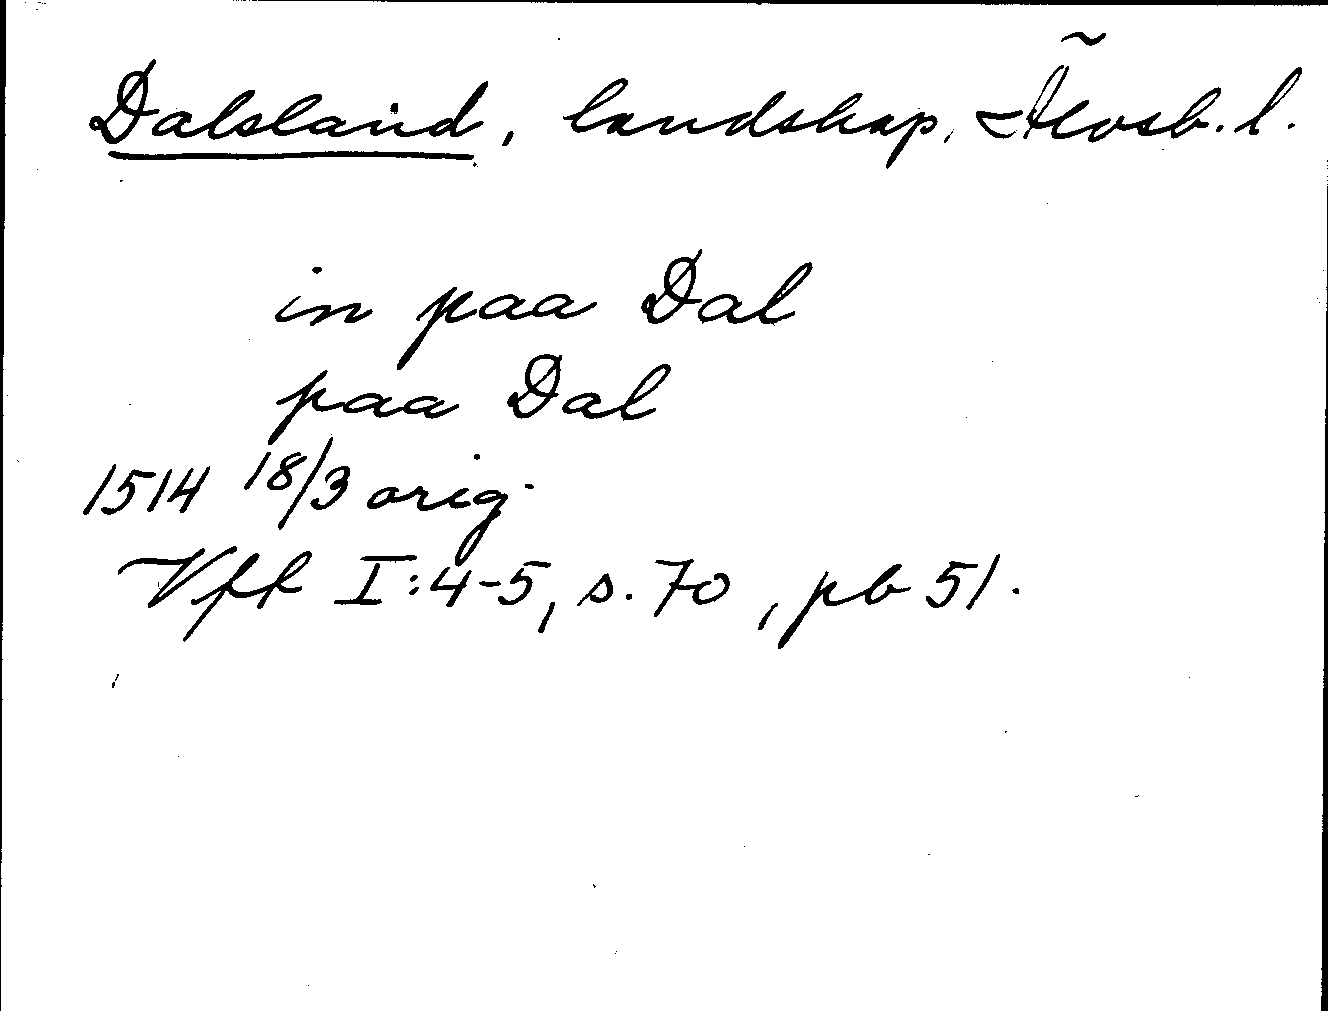 Dalsland, landskap, Älvsb. l.
in paa Dal
paa Dal
1514 18/3 orig.
Vff I:4-5, s. 70, pb 51.